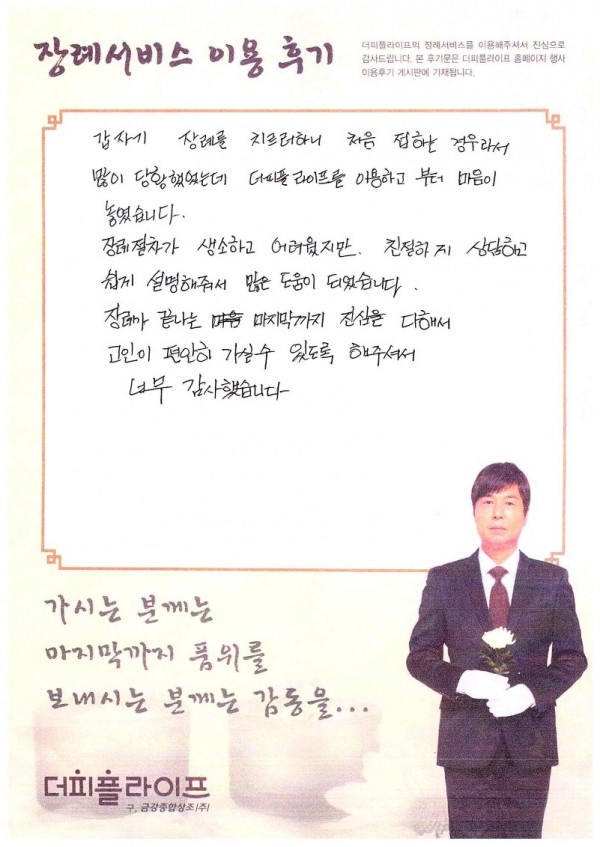 장례서비스 이용 후기
더피플라이프의 장례서비스를 이용해주셔서 진심으로
감사드립니다. 본 후기문은 더피플라이프 홈페이지 행사
이용후기 게시판에 기재됩니다.
갑자기 장례를 치르려하니 처음 접하는 경우라서
많이 당황했었는데 더피플라이프를 이용하고 부터 마음이
놓였습니다.
장례절차가 생소하고 어려웠지만. 친절하게 상담하고
쉽게 설명해줘서 많은 도움이 되었습니다.
장례가 끝나는 마지막까지 진심을 다해서
고인이 편안히 가실수 있도록 해주셔서
너무 감사했습니다
가시는 분께는
마지막까지 품위를
보내시는 분께는 감동을...
더피플라이프
구, 금강종합상조(주)